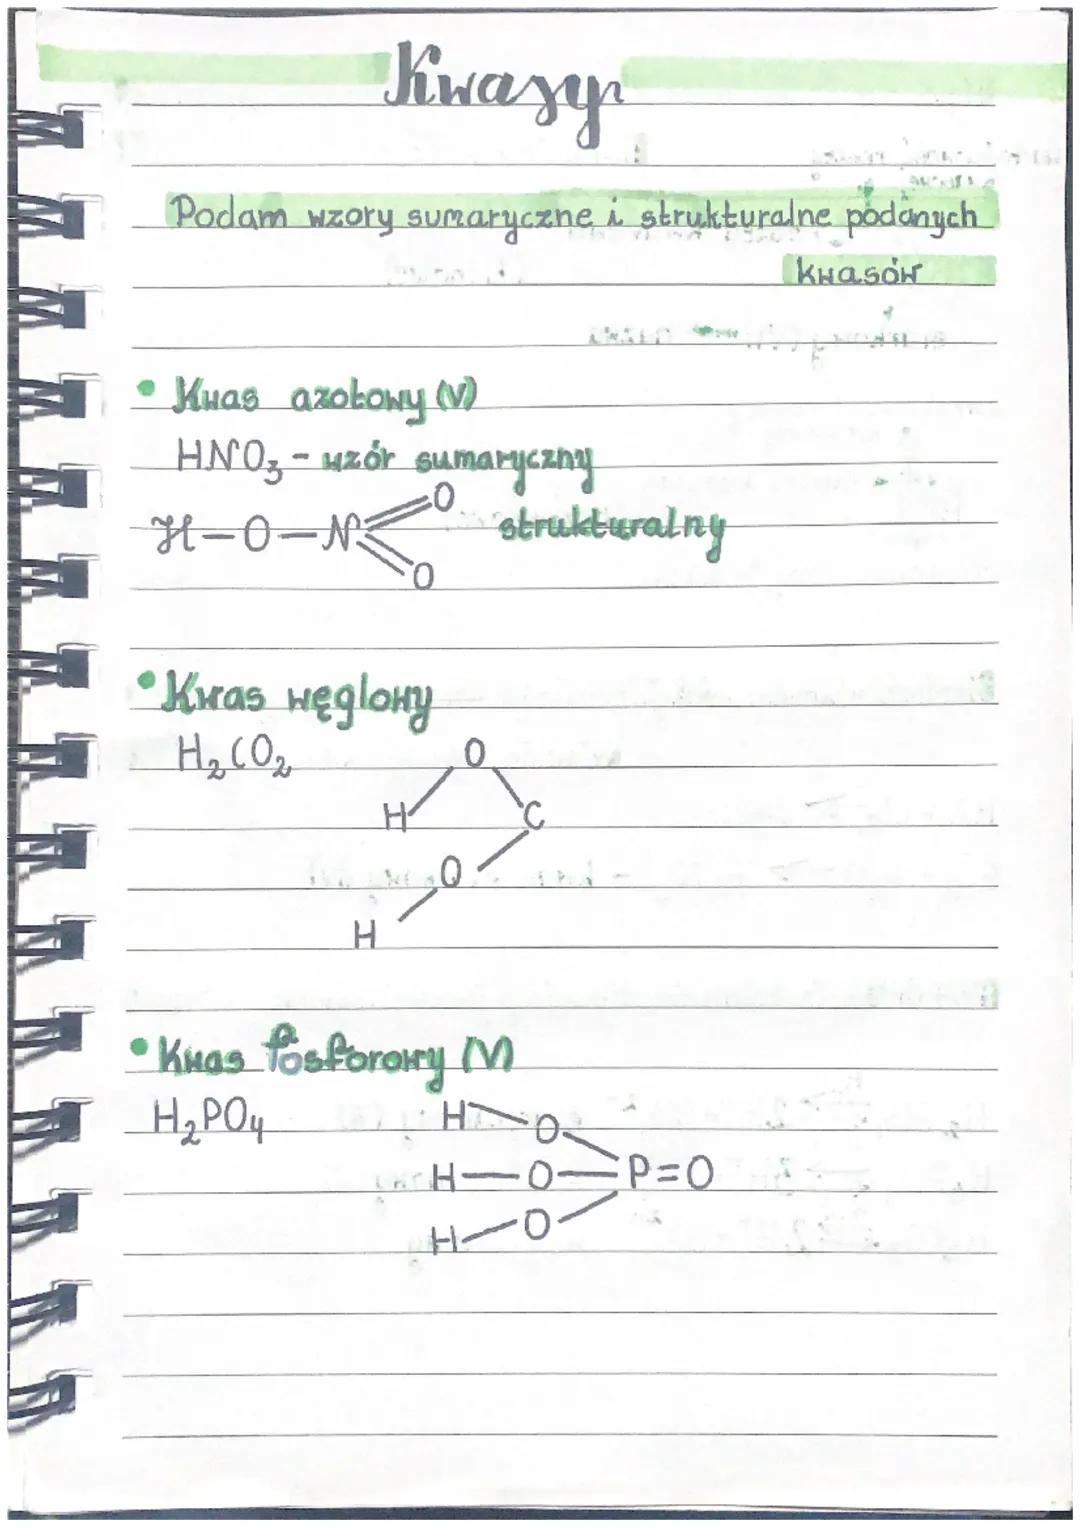 Kwasy
Podam wzory sumaryczne i strukturalne podanych
kwasów
• Kwas azotowy (V)
HNO₃ - wzór sumaryczny
H—O—N=O strukturalny
O
• Kwas węglowy
H₂CO₂ O
H C
O
H
• Kwas fosforowy (V)
H₂PO₄ H—O
H—O—P=O
H—O